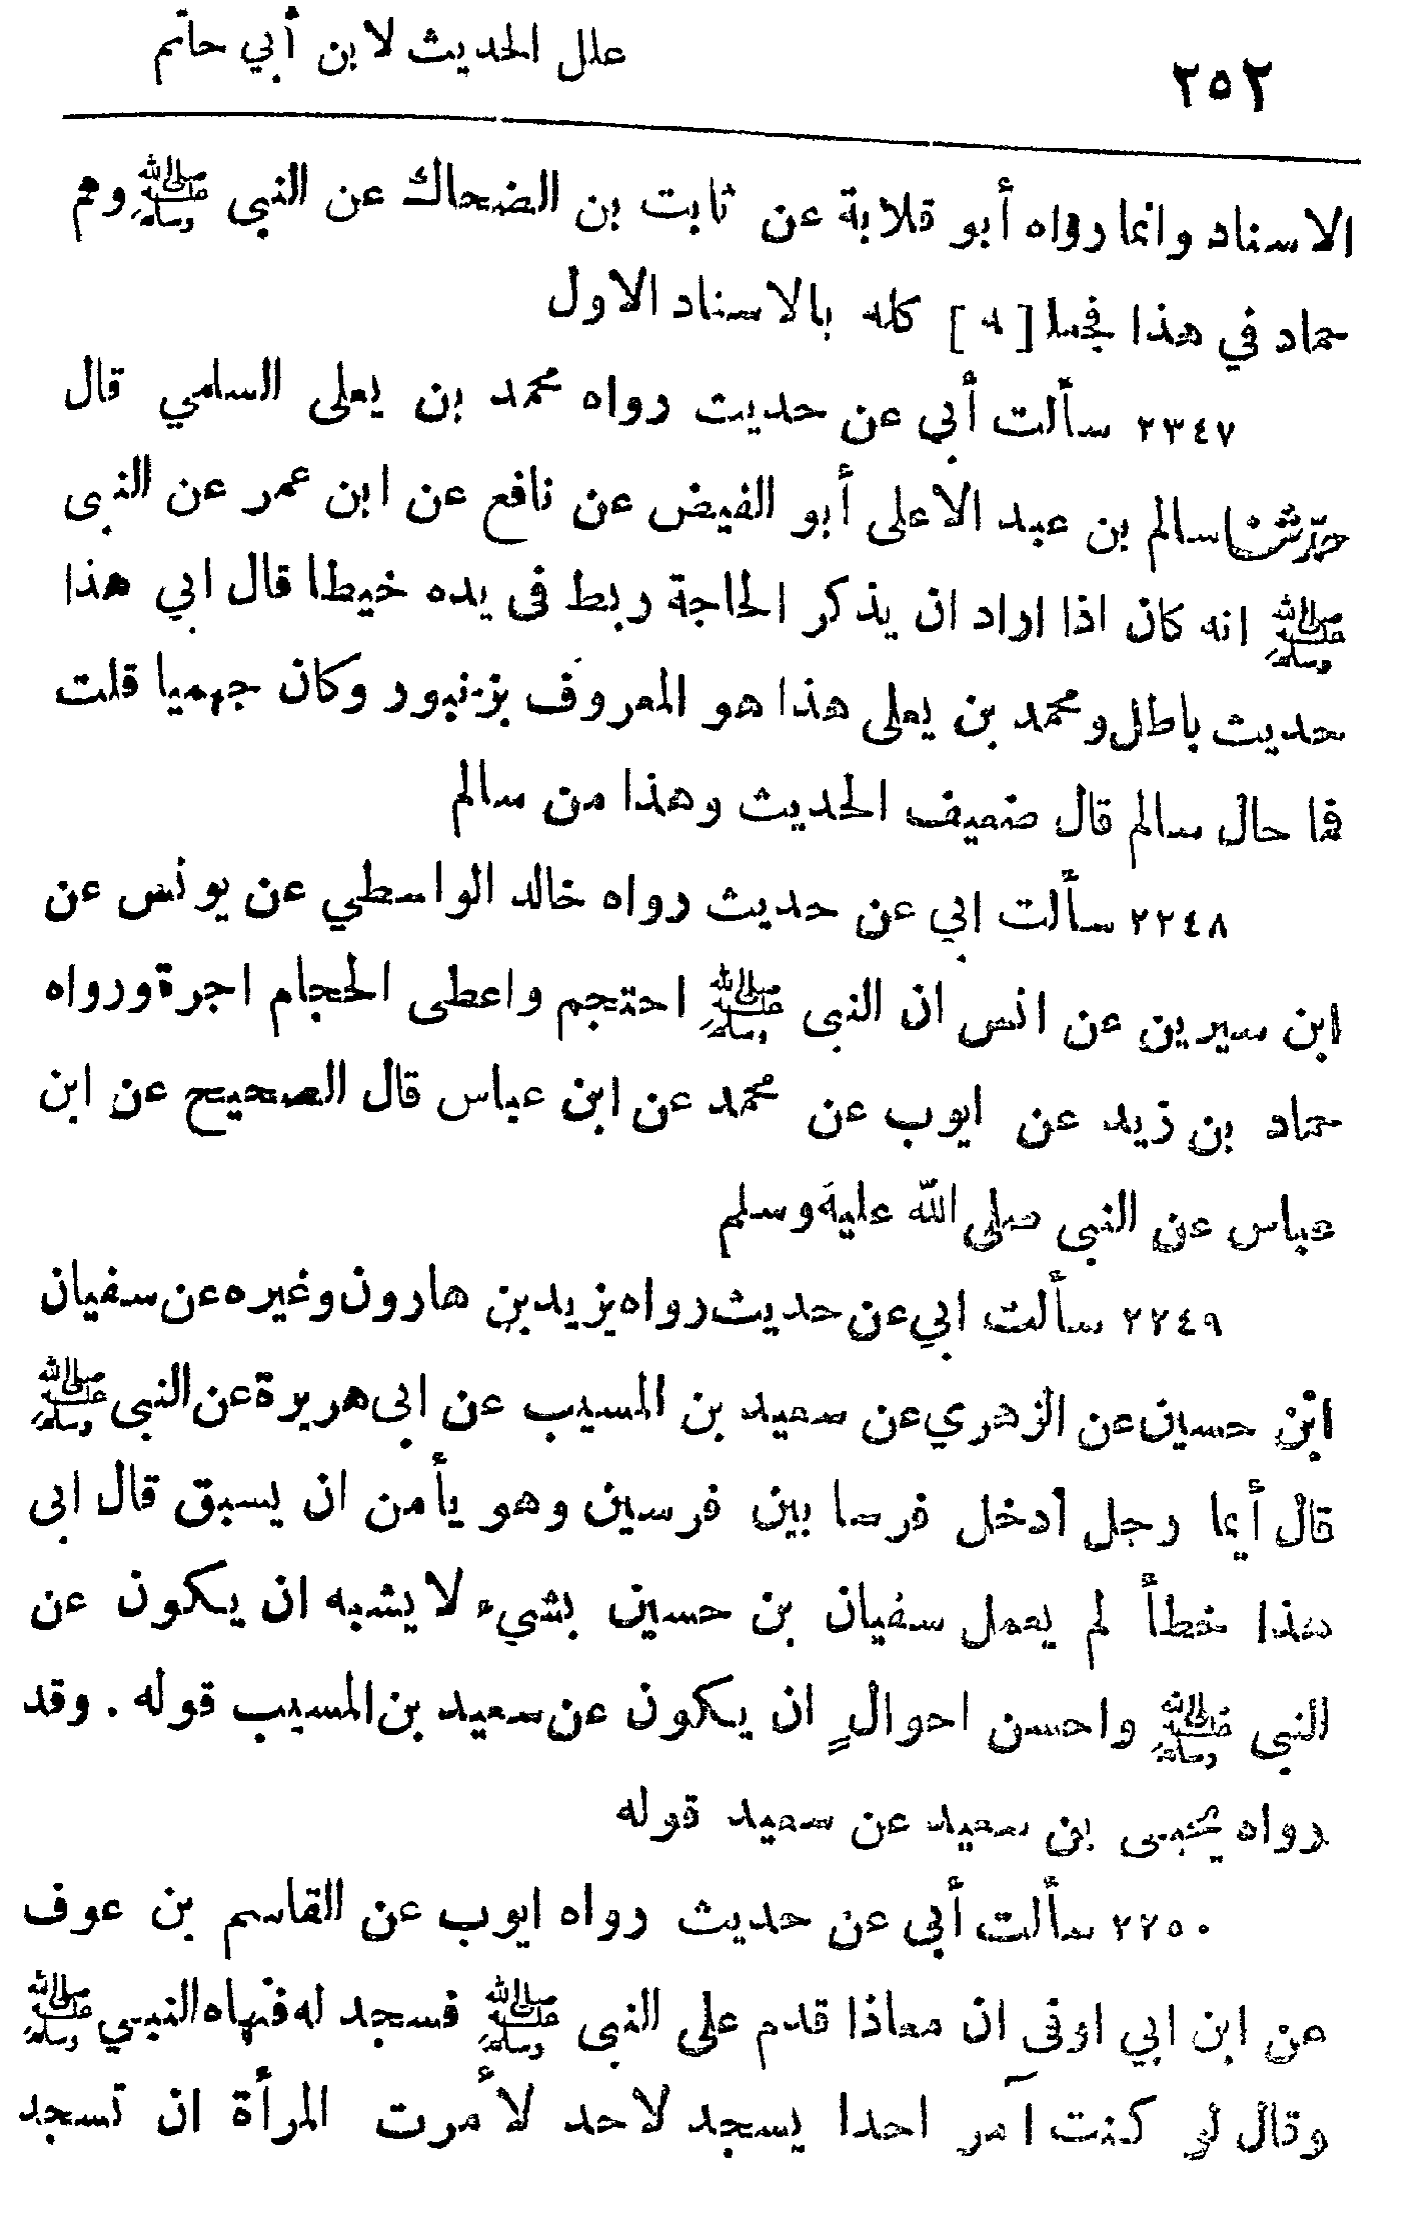 ٢٥٢ علل الحديث لابن أبي حاتم
الاسناد وانما رواه أبو قلابة عن ثابت بن الضحاك عن النبي ﷺ وهم
حماد في هذا فجعل [ ه ] كله بالاسناد الاول
٢٣٤٧ سألت أبي عن حديث رواه محمد بن يعلى السلمي قال
حدثنا سالم بن عبد الاعلى أبو الفيض عن نافع عن ابن عمر عن النبى
ﷺ انه كان اذا اراد ان يذكر الحاجة ربط فى يده خيطا قال ابي هذا
حديث باطل ومحمد بن يعلى هذا هو المعروف بزنبور وكان جهميا قلت
فما حال سالم قال ضعيف الحديث وهذا من سالم
٢٢٤٨ سألت ابي عن حديث رواه خالد الواسطي عن يونس عن
ابن سيرين عن انس ان النبى ﷺ احتجم واعطى الحجام اجرة ورواه
حماد بن زيد عن ايوب عن محمد عن ابن عباس قال الصحيح عن ابن
عباس عن النبى صلى الله عليه وسلم
٢٢٤٩ سألت ابي عن حديث رواه يزيد بن هارون وغيره عن سفيان
ابن حسين عن الزهري عن سعيد بن المسيب عن ابى هريرة عن النبى ﷺ
قال أيما رجل أدخل فرسا بين فرسين وهو يأمن ان يسبق قال ابى
هذا خطأ لم يعمل سفيان بن حسين بشيء لا يشبه ان يكون عن
النبى ﷺ واحسن احوالٍ ان يكون عن سعيد بن المسيب قوله . وقد
رواه يحيى بن سعيد عن سعيد قوله
٢٢٥٠ سألت أبى عن حديث رواه ايوب عن القاسم بن عوف
عن ابن ابي اوفى ان معاذا قدم على النبى ﷺ فسجد له فنهاه النبي ﷺ
وقال لو كنت آمر احدا يسجد لاحد لأمرت المرأة ان تسجد